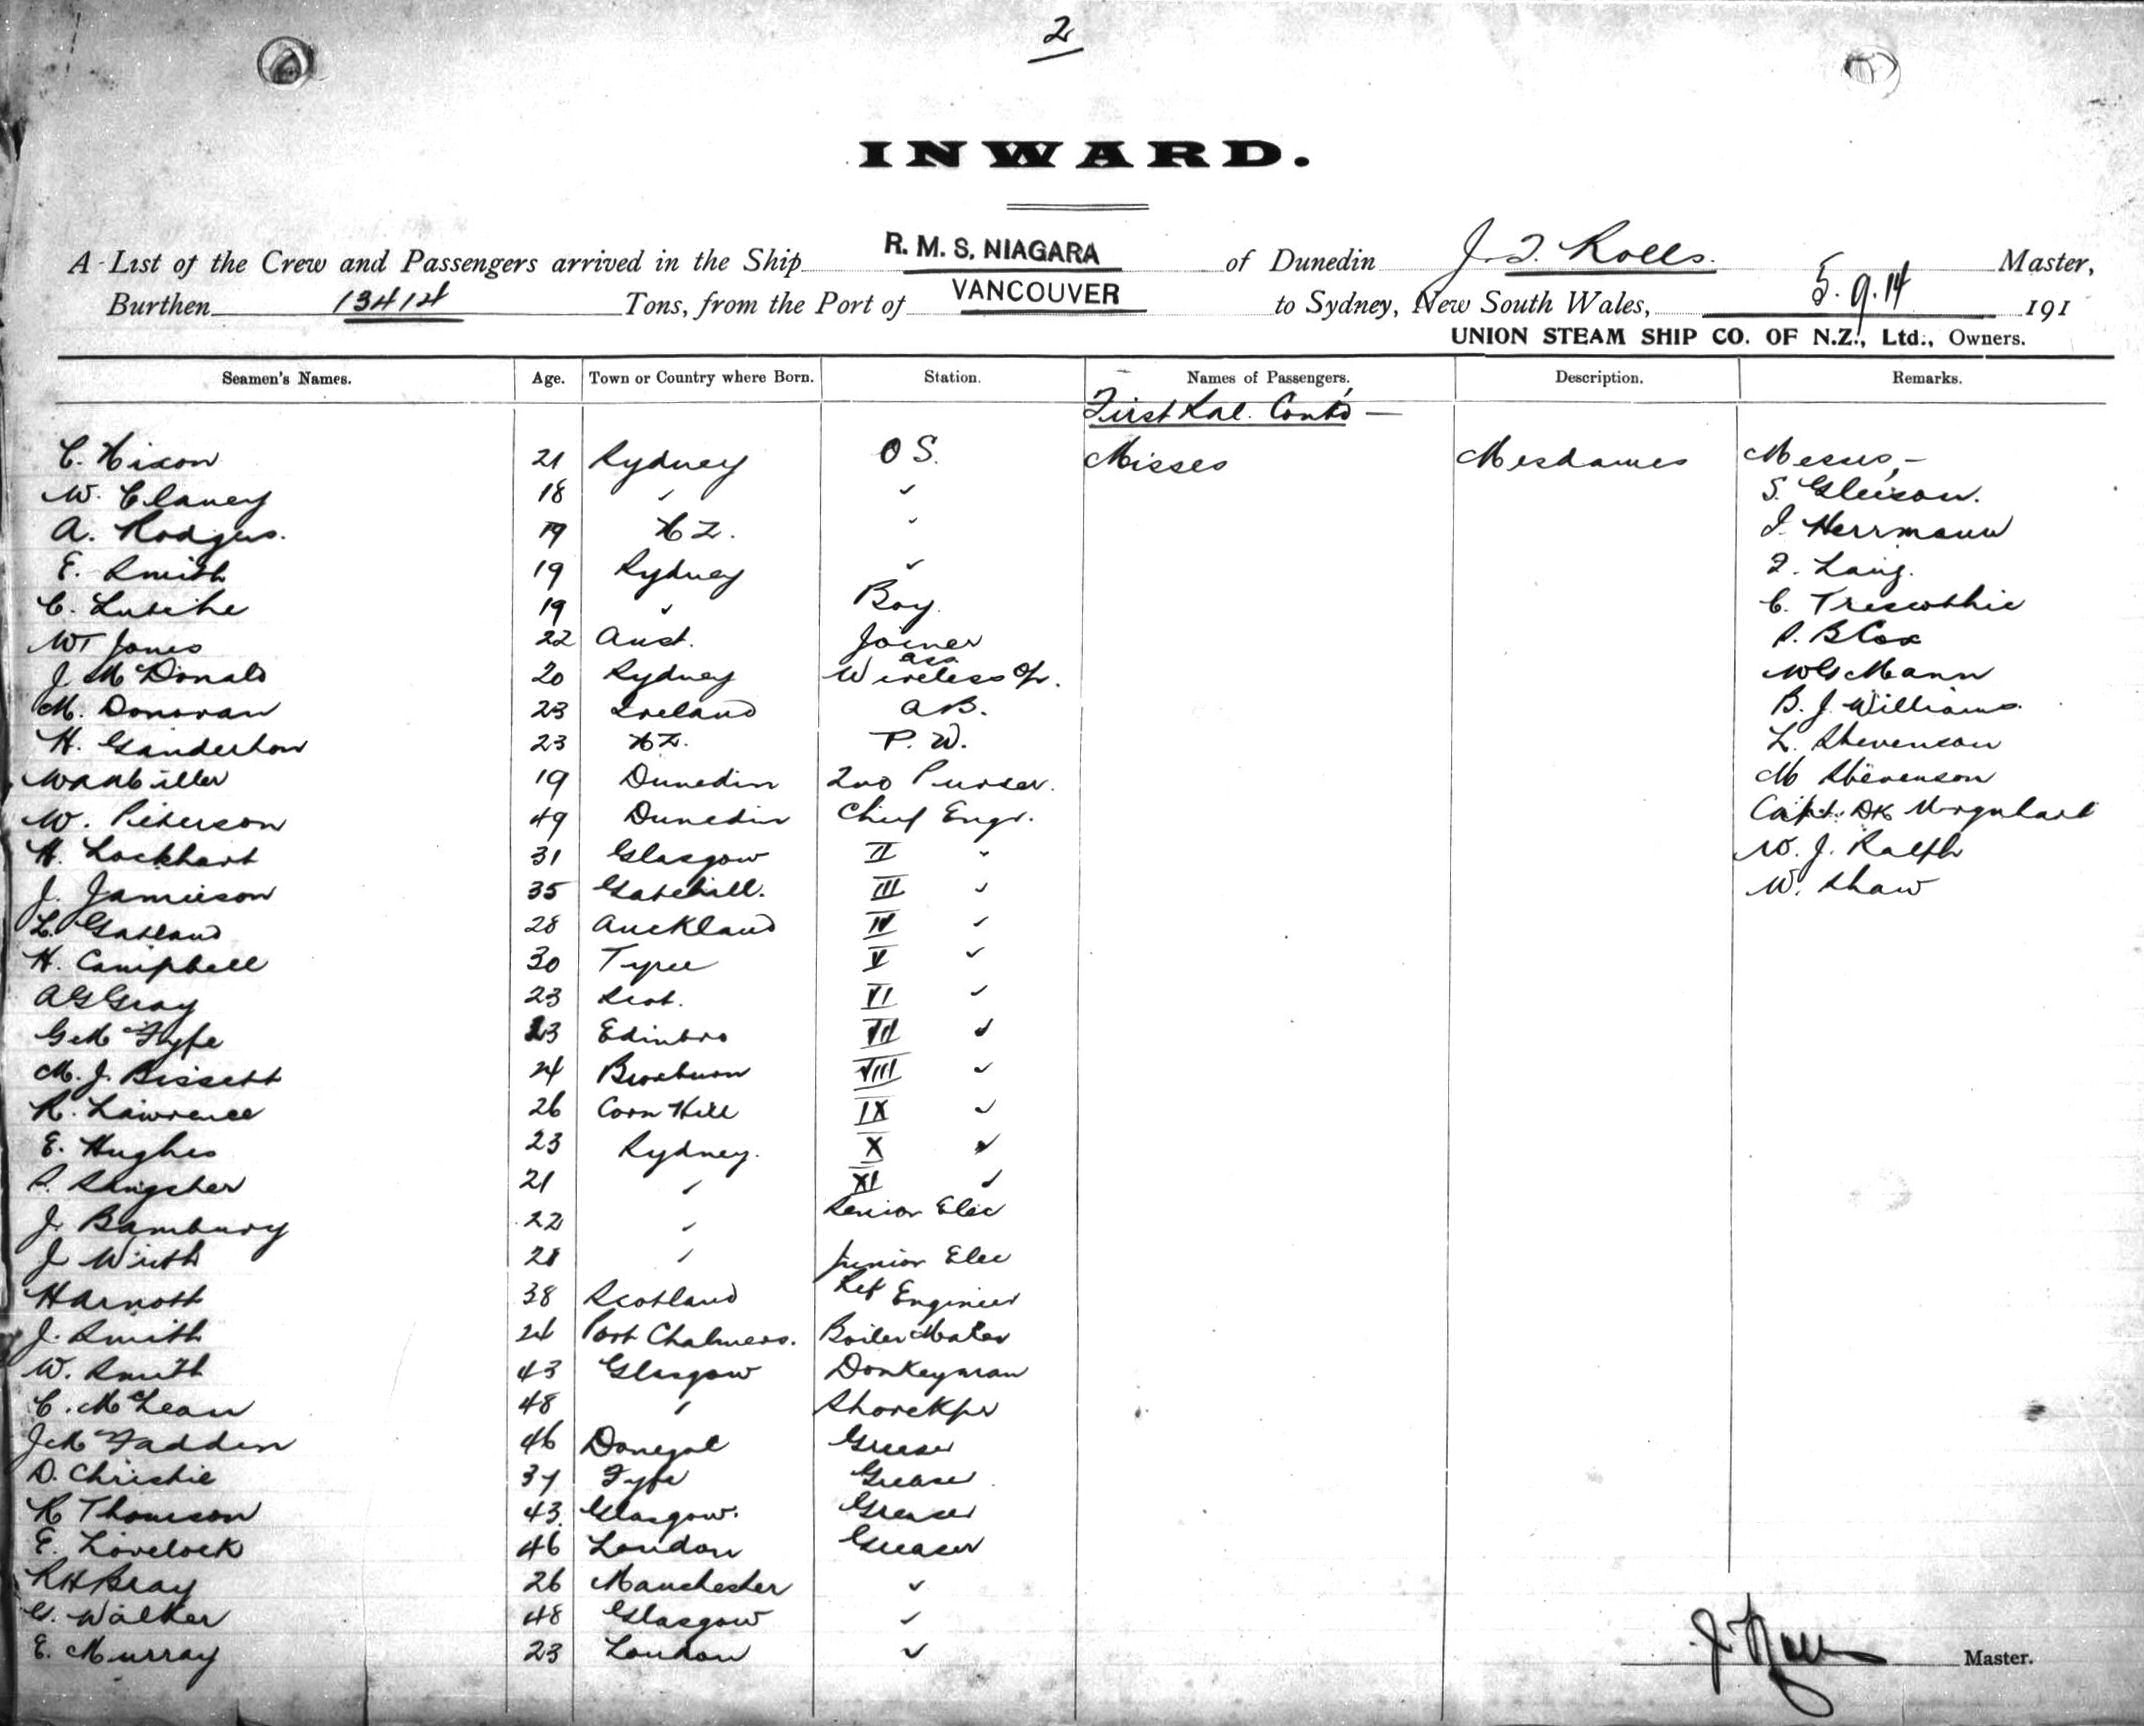 2
INWARD.
A List of the Crew and Passengers arrived in the Ship R. M. S. NIAGARA of Dunedin J. T. Rolls. Master,
Burthen 13414 Tons, from the Port of VANCOUVER to Sydney, New South Wales, 5.9.14 191
UNION STEAM SHIP CO. OF N.Z., Ltd., Owners.
Seamen's Names. Age. Town or Country where Born. Station. Names of Passengers. Description. Remarks.
First Sal. Contd —
C. Nixon 21 Sydney O S. Misses Mesdames Messrs, –
W. Clancy 18 " " S. Gleeson.
A. Rodgers. 19 N Z. " J. Herrmann
E. Smith 19 Sydney " F. Laing.
C. 19 " Boy. C. Trescothic
W T Jones 22 Aust. Joiner S. B Cox
J. McDonald 20 Sydney ass Wireless Op. W G Mann
M. Donovan 23 Ireland A B. B. J. Williams.
H. Ganderton 23 N Z. P. W. L. Stevenson
W A Miller 19 Dunedin 2nd Purser. M Stevenson
W. Peterson 49 Dunedin Chief Engr. Capt. D K Urquhart
H. Lockhart 31 Glasgow II " W. J. Ralph
J. Jamieson 35 III " W. Shaw
L. Gatland 28 Auckland IV "
H. Campbell 30 Tyree V "
A G Gray 23 Scot. VI "
G M Fyfe 23 Edinbro VII "
M. J. Bissett 24 Broxburn VIII "
R. Lawrence 26 Corn Hill IX "
E. Hughes 23 Sydney. X "
S. 21 " XI "
J. Bambury 22 " Senior Elec
J. Wirth 28 " Junior Elec
H Arnott 38 Scotland Ref Engineer
J. Smith 24 Port Chalmers. Boiler Maker
W. Smith 43 Glasgow Donkeyman
C. McLean 48 " Storekpr
J McFadden 46 Donegal Greaser
D. Christie 37 Fyfe Greaser
R Thomson 43 Glasgow. Greaser
E. Lovelock 46 London Greaser
R H Bray 26 Manchester "
G. Walker 48 Glasgow "
E. Murray 23 London "
J. T. Rolls Master.